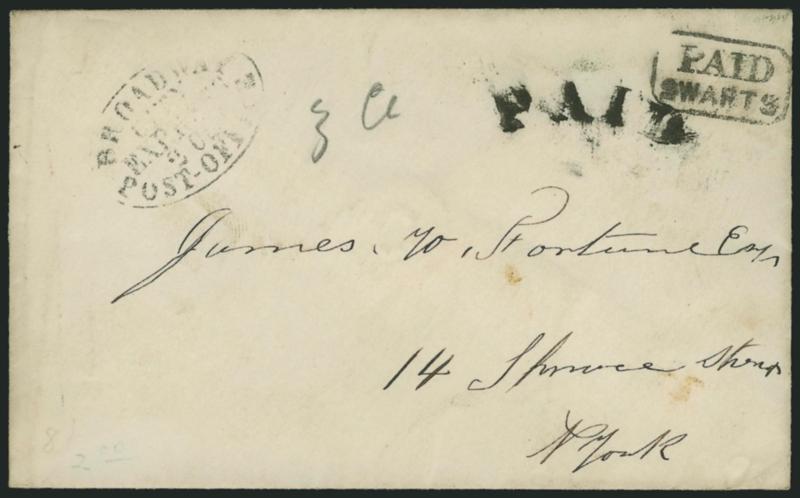 BROADWAY
POST-OFFICE
3 Cts
PAID
PAID
SWARTS
James. W. Fortune Esq,
14 Spruce Street
N York
8
2 00